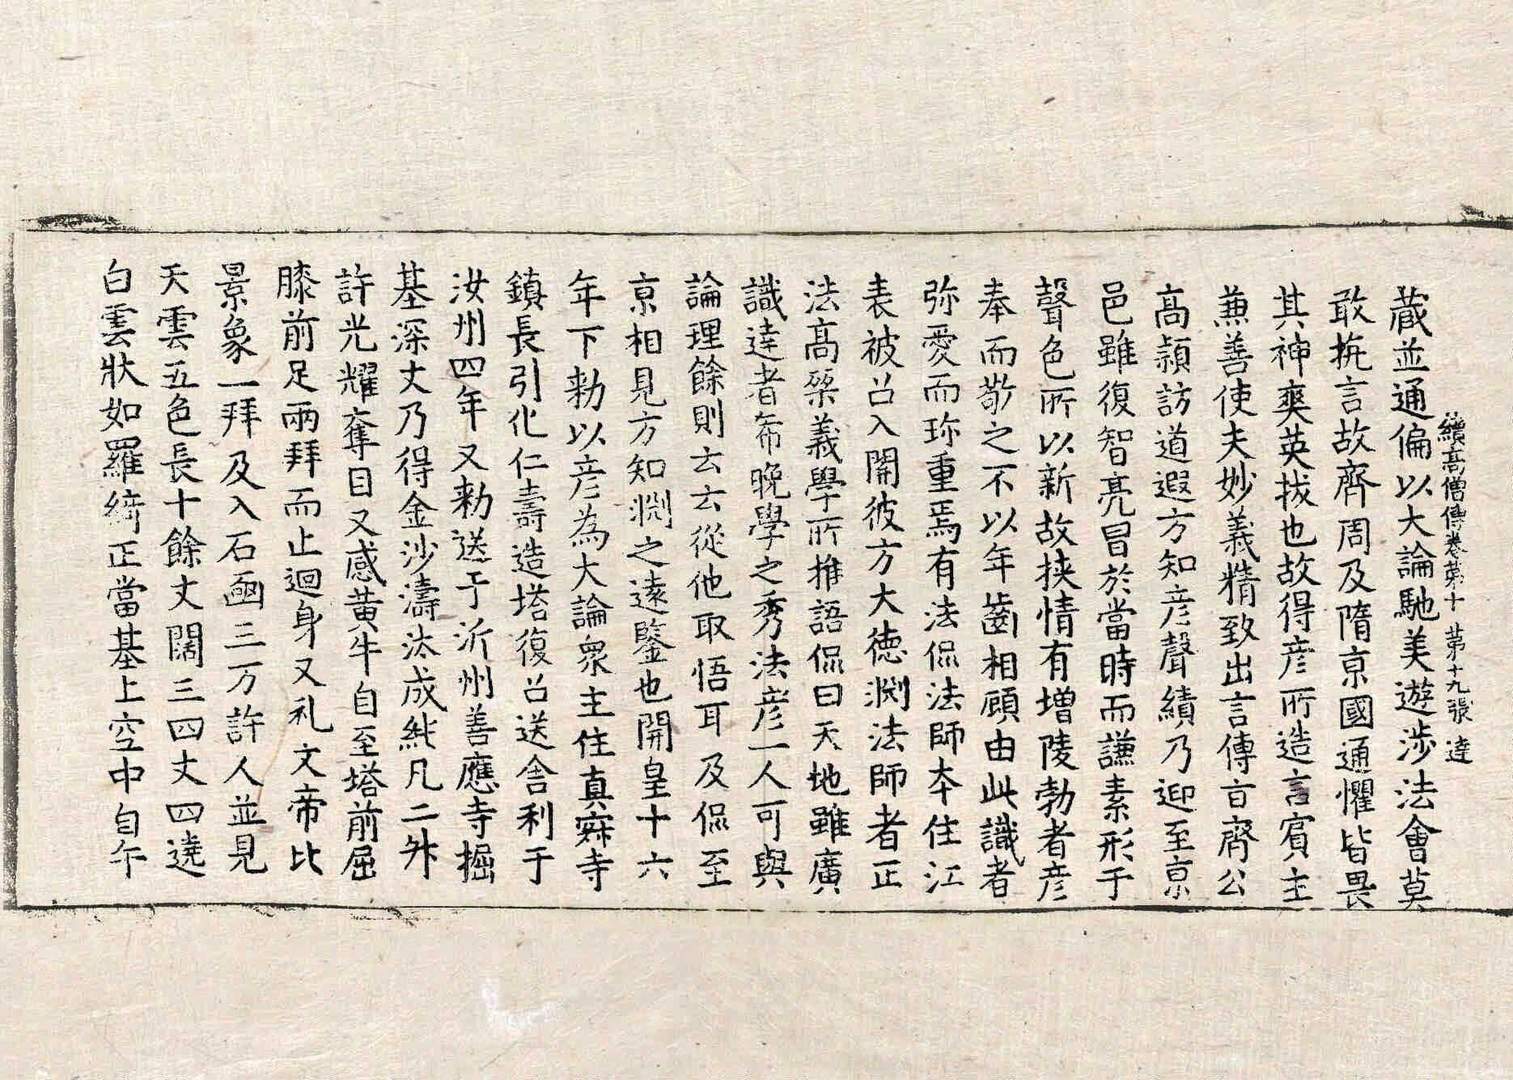 續高僧傳卷第十　第十九張　達
藏並通偏以大論馳美遊涉法會莫
敢抗言故齊周及隋京國通懼皆畏
其神爽英拔也故得彦所造言賓主
兼善使夫妙義精致出言傳旨齊公
高熲訪道遐方知彦聲績乃迎至京
邑雖復智亮冒於當時而謙素形于
聲色所以新故挾情有增陵勃者彦
奉而敬之不以年齒相顧由此識者
弥愛而珎重焉有法侃法師本住江
表被召入關彼方大德渊法師者正
法高棨義學所推語侃曰天地雖廣
識達者希晚學之秀法彦一人可與
論理餘則云云從他取悟耳及侃至
京相見方知渊之遠鑒也開皇十六
年下勑以彦為大論衆主住真㝛寺
鎮長引化仁壽造塔復召送舍利于
汝州四年又勑送于沂州善應寺掘
基深丈乃得金沙濤汰成純凡二升
許光耀奪目又感黃牛自至塔前屈
膝前足兩拜而止迴身又礼文帝比
景象一拜及入石函三万許人並見
天雲五色長十餘丈闊三四丈四遶
白雲狀如羅綺正當基上空中自午